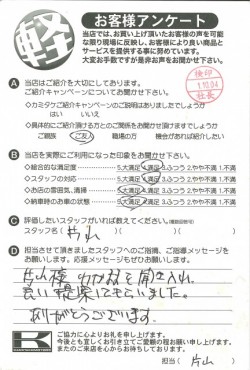 軽
お客様アンケート
当店では、お買い上げ頂いたお客様の声を可能
な限り現場に反映し、お客様により良い商品と
サービスを提供する事に努めています。
大変お手数ですが是非お声をお聞かせ下さい。
検印
社長
A 当店はご紹介を大切にしております。
ご紹介キャンペーンについてお聞かせ下さい。
◇カミタケご紹介キャンペーンのご説明はありましたでしょうか
はい いいえ
◇具体的にご紹介頂ける方とのご関係をお聞かせ頂けますでしょうか
ご親族 ご友人 職場の方 機会があれば紹介したい
B 当店を実際にご利用になった印象をお聞かせ下さい。
◇総合的な満足度 5.大満足 4.満足 3.ふつう 2.やや不満 1.不満
◇スタッフの対応 5.大満足 4.満足 3.ふつう 2.やや不満 1.不満
◇お店の雰囲気、清掃 5.大満足 4.満足 3.ふつう 2.やや不満 1.不満
◇納車時のお車の状態 5.大満足 4.満足 3.ふつう 2.やや不満 1.不満
C 評価したいスタッフがいれば教えてください。
スタッフ名( 片山 )( )
D 担当させて頂きましたスタッフへのご指導、ご指導メッセージを
お願いします。応援メッセージもぜひお願いします。
片山様 わがままを聞き入れ
良い提案してもらいました。
ありがとうございます。
K
ご協力に心よりお礼を申し上げます。
今後とも宜しくお引き立てご愛顧の程お願い申し上げます。
またのご来店を心からお待ちしております。
担当( 片山 )